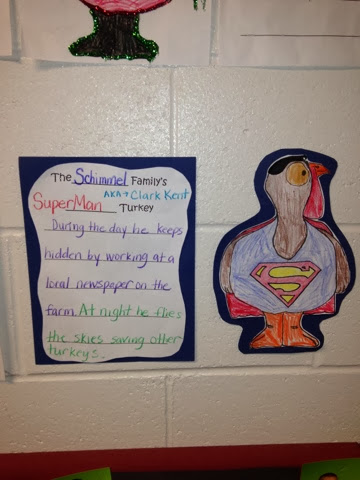 The Schimmel Family's
AKA→ Clark Kent
SuperMan Turkey
During the day he keeps
hidden by working at a
local newspaper on the
farm. At night he flies
the skies saving other
turkeys.
S